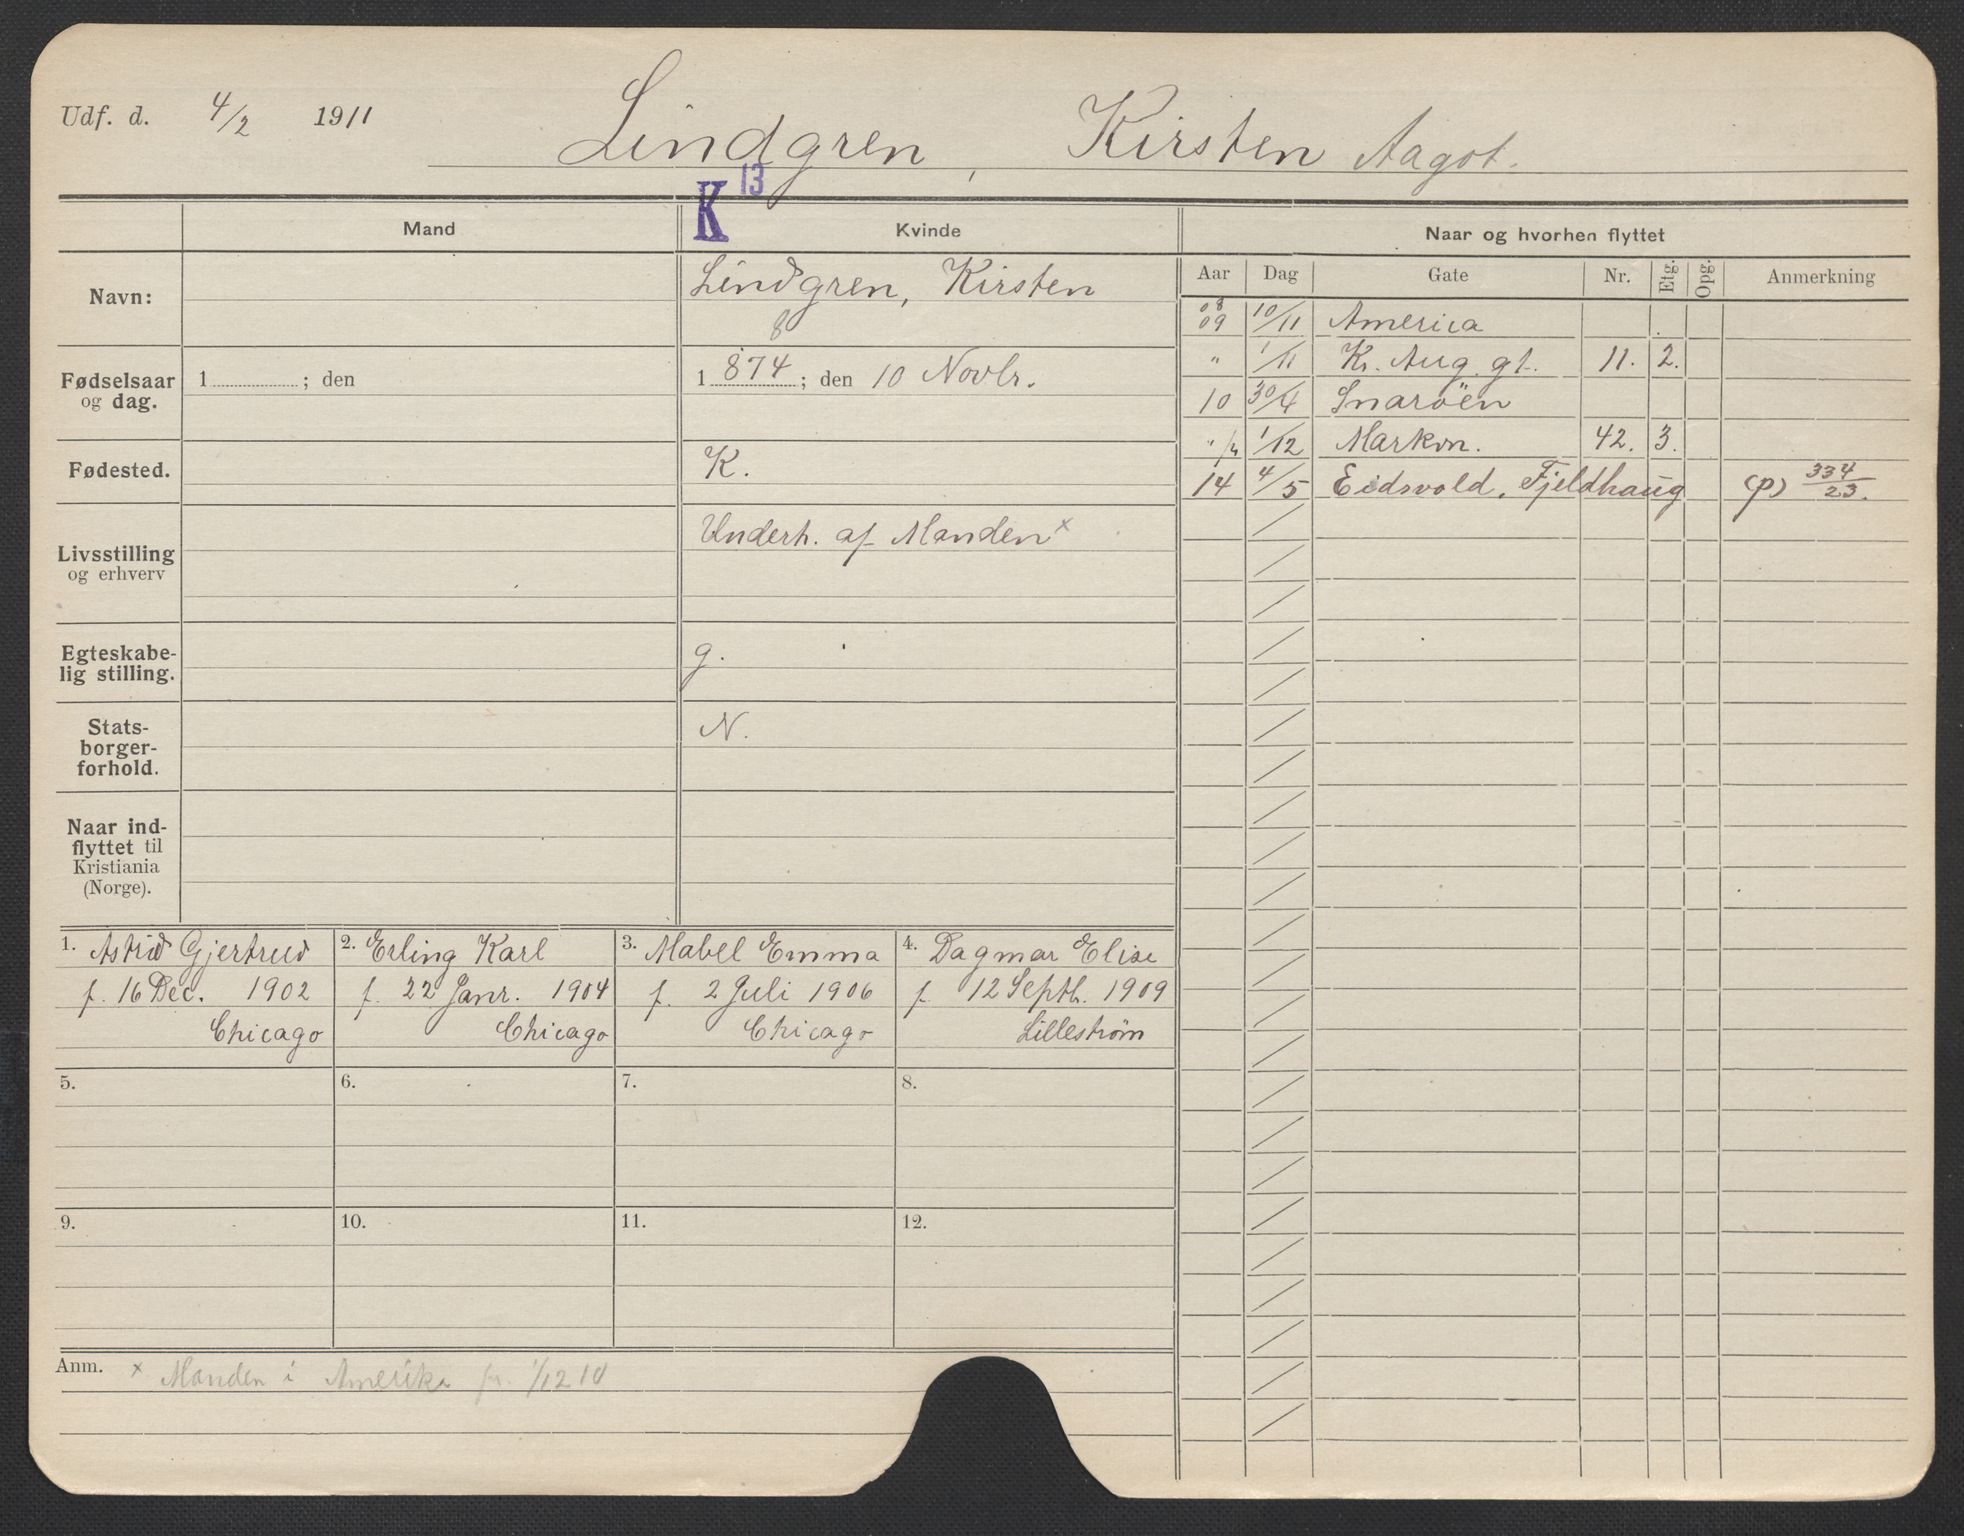 Udf. d. 4/2 1911
Lindgren, Kirsten Aagot.
K 13
Mand Kvinde Naar og hvorhen flyttet
Aar Dag Gate Nr. Etg. Opg. Anmerkning
Navn: Lindgren, Kirsten
8
Fødselsaar og dag. 1 ; den 1 874 ; den 10 Novbr.
Fødested. K.
Livsstilling og erhverv Underh. af Manden x
Egteskabe-
lig stilling. g.
Stats-
borger-
forhold. N.
Naar ind-
flyttet til
Kristiania
(Norge).
08
09 10/11 America
" 1/11 Kr. Aug. gt. 11. 2.
10 30/4 Snarøen
" 1/12 Markvn. 42. 3.
14 4/5 Eidsvold, Fjeldhaug (p) 334/23.
1. Astrid Gjertrud
f. 16 Dec. 1902
Chicago
2. Erling Karl
f. 22 Janr. 1904
Chicago
3. Mabel Emma
f. 2 Juli 1906
Chicago
4. Dagmar Elise
f. 12 Septb. 1909
Lillestrøm
5. 6. 7. 8.
9. 10. 11. 12.
Anm. x Manden i Amerika 1/12 10